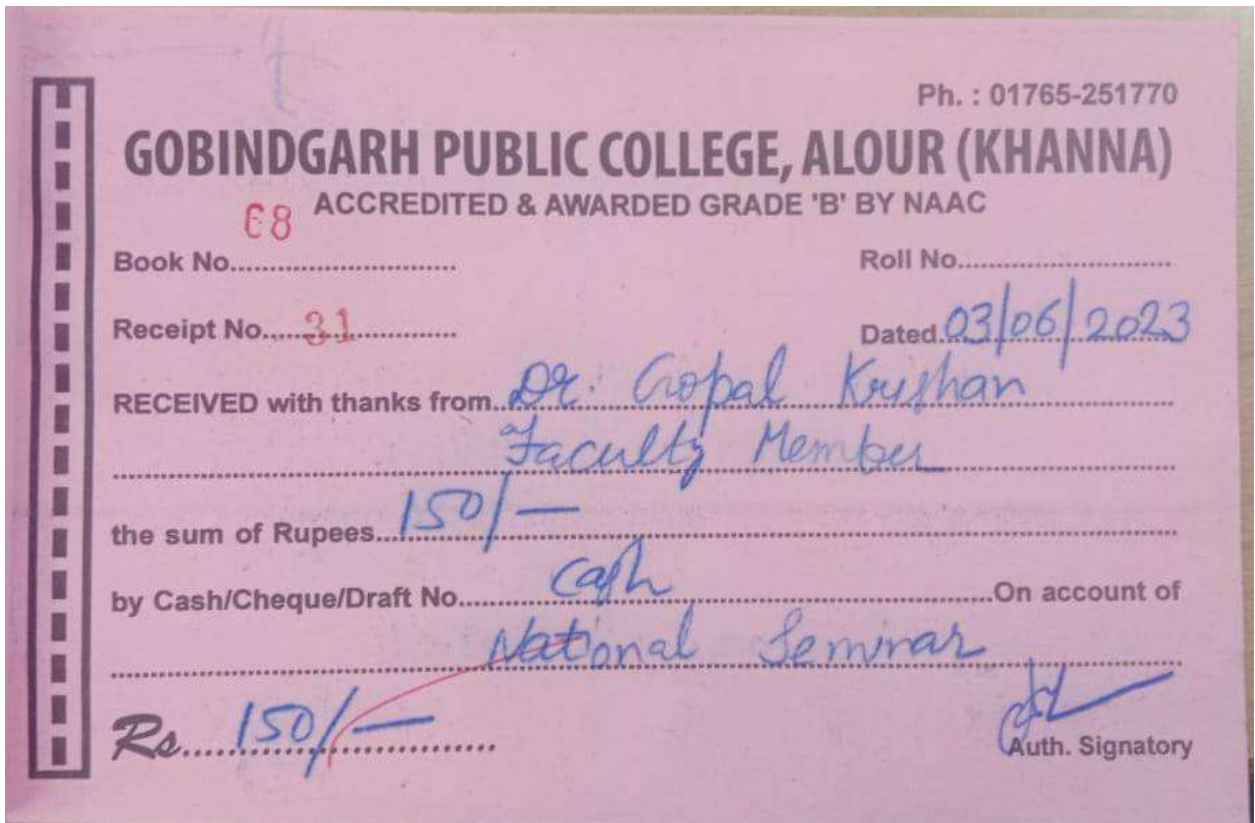 Ph. : 01765-251770
GOBINDGARH PUBLIC COLLEGE, ALOUR (KHANNA)
ACCREDITED & AWARDED GRADE 'B' BY NAAC
Book No. 68 Roll No.
Receipt No. 31 Dated. 03/06/2023
RECEIVED with thanks from. Dr. Gopal Krishan
Faculty Member
the sum of Rupees. 150/-
by Cash/Cheque/Draft No. Cash On account of
National Seminar
Rs. 150/-
Auth. Signatory